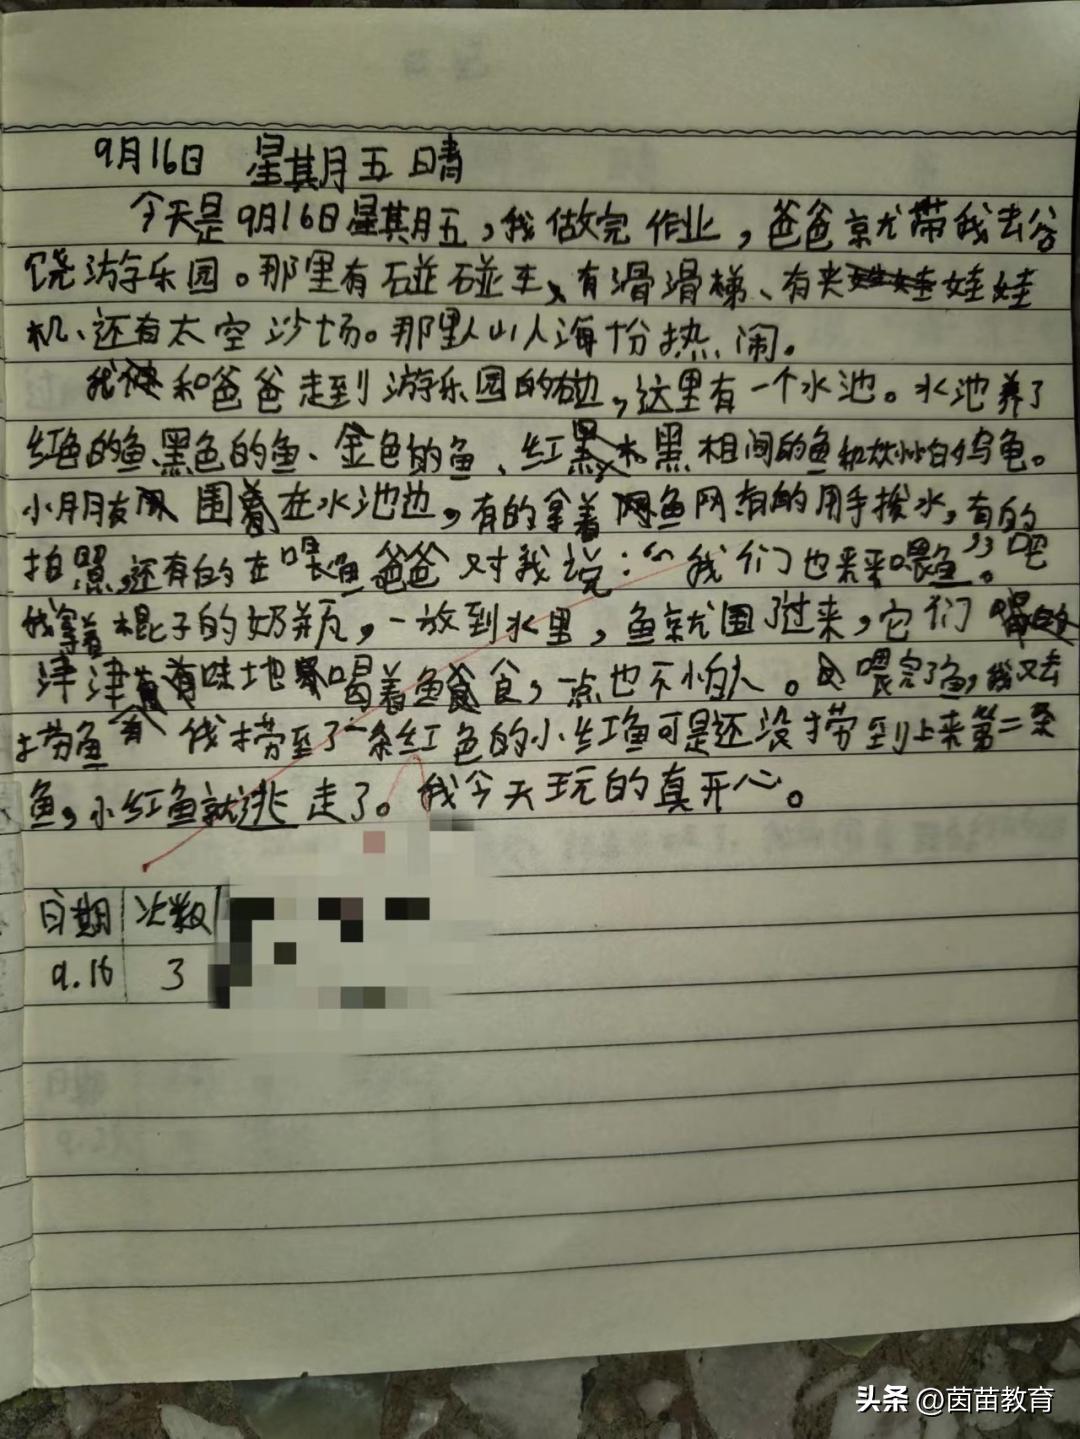 9月16日 星期五 晴
今天是9月16日星期五，我做完作业，爸爸就带我去谷
饶游乐园。那里有碰碰车、有滑滑梯、有夹娃娃
机、还有太空沙场。那里人山人海十份热闹。
我和爸爸走到游乐园的边，这里有一个水池。水池养了
红色的鱼、黑色的鱼、金色的鱼、红黑相间的鱼和乌龟。
小朋友围着在水池边，有的拿着鱼网有的用手挨水，有的
拍照，还有的在喂鱼爸爸对我说：“我们也来喂鱼”。吧
我拿着棍子的奶瓶，一放到水里，鱼就围了过来，它们
津津有味地喝着鱼食，一点也不怕人。喂完了鱼，我又去
捞鱼 我捞到了一条红色的小红鱼可是还没捞到上来第二条
鱼，小红鱼就逃走了。我今天玩的真开心。
日期 次数
9.16 3
头条 @茵苗教育